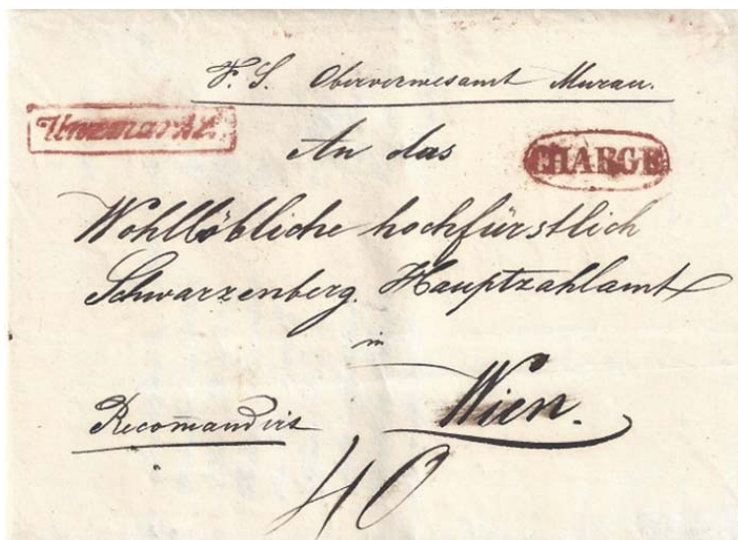 F. S. Oberverwesamt Murau.
Unzmarkt.
An das
CHARGE
Wohllöbliche hochfürstlich
Schwarzenberg. Hauptzahlamt
in
Wien.
Recomandirt
40